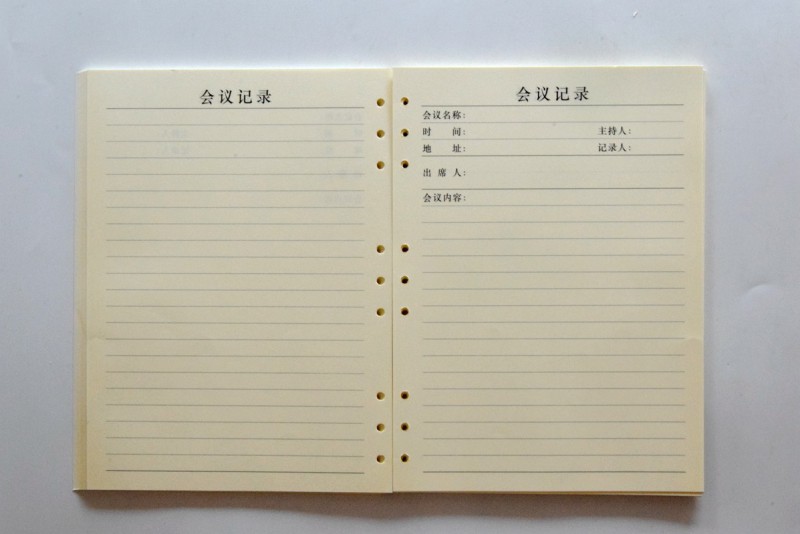 会议记录
会议记录
会议名称:
时 间: 主持人:
地 址: 记录人:
出 席 人:
会议内容: